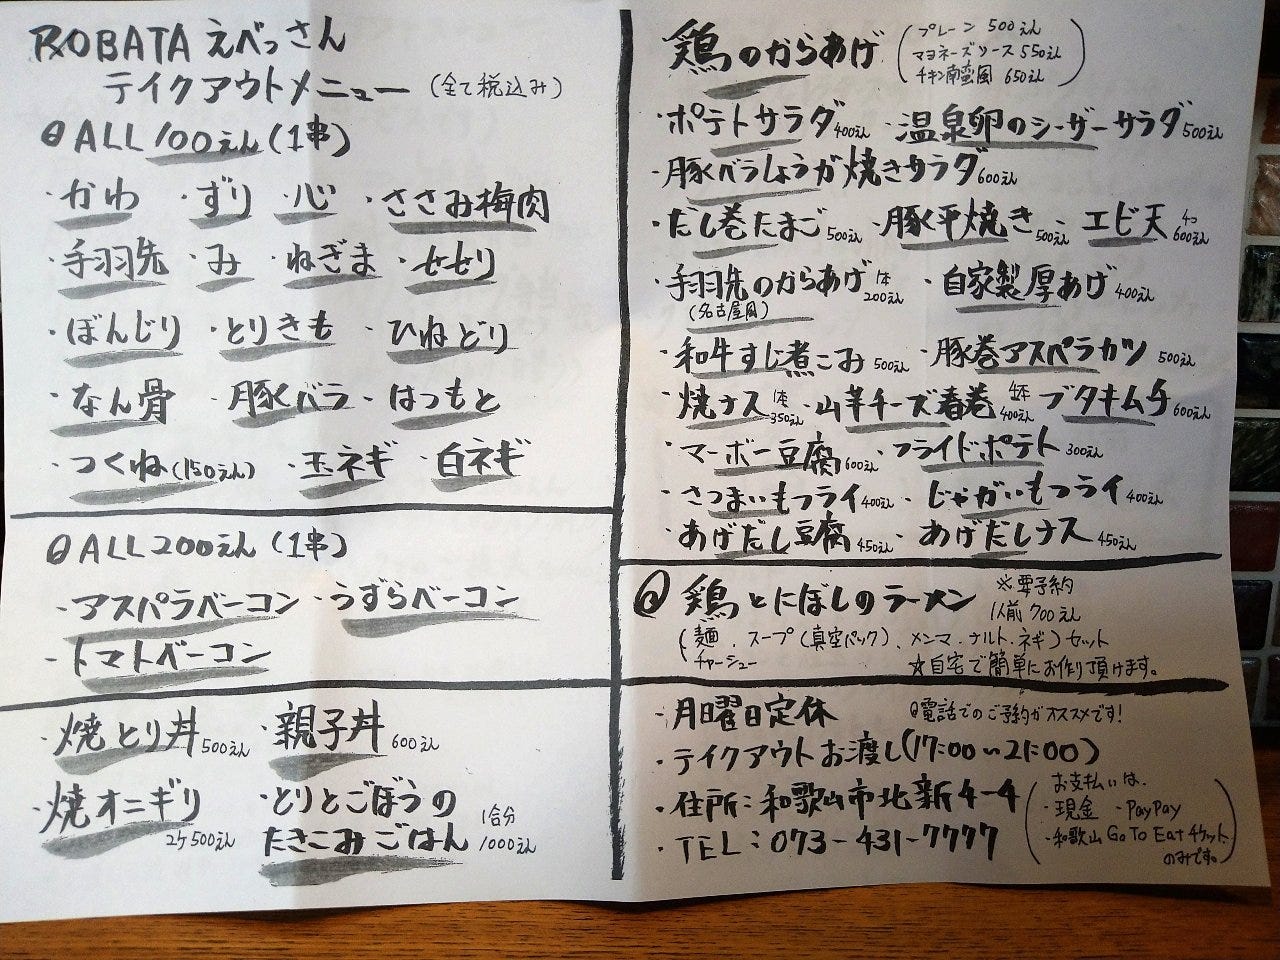 ROBATA えべっさん
テイクアウトメニュー (全て税込み)
ALL 100えん (1串)
・かわ ・ずり ・心 ・ささみ梅肉
・手羽先 ・み ・ねぎま ・せせり
・ぼんじり ・とりきも ・ひねどり
・なん骨 ・豚バラ ・はつもと
・つくね(150えん) ・玉ネギ ・白ネギ
ALL 200えん (1串)
・アスパラベーコン ・うずらベーコン
・トマトベーコン
・焼とり丼 500えん ・親子丼 600えん
・焼オニギリ 2ケ 500えん
・とりとごぼうの
たきこみごはん 1合分 1000えん
鶏のからあげ (プレーン 500えん
マヨネーズソース 550えん
チキン南蛮風 650えん)
・ポテトサラダ 400えん ・温泉卵のシーザーサラダ 500えん
・豚バラしょうが焼きサラダ 600えん
・だし巻たまご 500えん ・豚平焼き 500えん ・エビ天 4コ 600えん
・手羽先のからあげ 1本 200えん ・自家製厚あげ 400えん
(名古屋風)
・和牛すじ煮こみ 500えん ・豚巻アスパラカツ 500えん
・焼ナス 1本 350えん ・山芋チーズ春巻 4本 400えん ブタキムチ 600えん
・マーボー豆腐 600えん ・フライドポテト 300えん
・さつまいもフライ 400えん ・じゃがいもフライ 400えん
・あげだし豆腐 450えん ・あげだしナス 450えん
鶏とにぼしのラーメン ※要予約
1人前 700えん
(麺、スープ(真空パック)、メンマ、ナルト、ネギ)セット
チャーシュー
☆自宅で簡単にお作り頂けます。
・月曜日定休 電話でのご予約がオススメです!
・テイクアウトお渡し(17:00〜21:00)
・住所:和歌山市北新4-4
・TEL:073-431-7777
(お支払いは、
・現金 ・PayPay
・和歌山 Go To Eat チケット
のみです。)